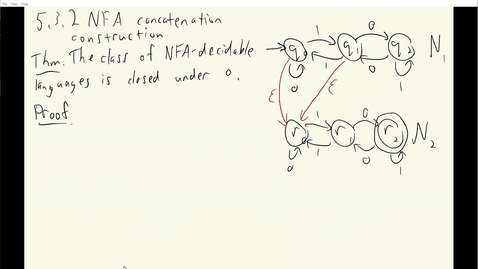 5.3.2 NFA concatenation
construction
Thm. The class of NFA-decidable
languages is closed under o.
Proof.
1 0
q0 q1 q2 N1
1 0
0 1
ε ε
1 0
r0 r1 r2 N2
1 0
0 1